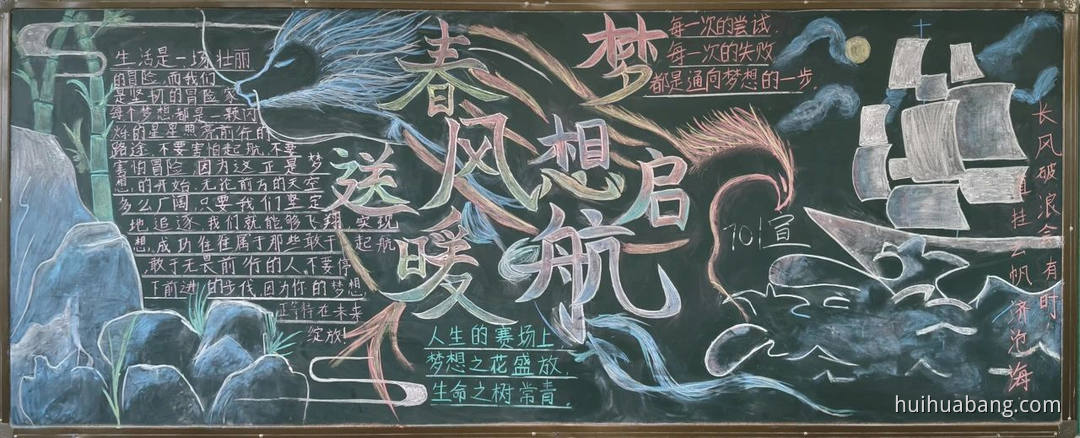 生活是一场壮丽
的冒险,而我们
是坚韧的冒险家
每个梦想都是一颗闪
烁的星星照亮前行的
路途,不要害怕起航,不要
害怕冒险,因为这正是梦
想,的开始,无论前方的天空
多么广阔,只要我们坚定
地追逐,我们就能够飞翔,实现
想,成功往往属于那些敢于 起航
敢于无畏前行的人,不要停
下前进的步伐,因为你的梦想,
正等待在未来
绽放!
春风送暖
梦想启航
每一次的尝试.
每一次的失败
都是通向梦想的一步.
人生的赛场上,
梦想之花盛放,
生命之树常青,
701宣
长风破浪会有时
直挂云帆济沧海
huihuabang.com